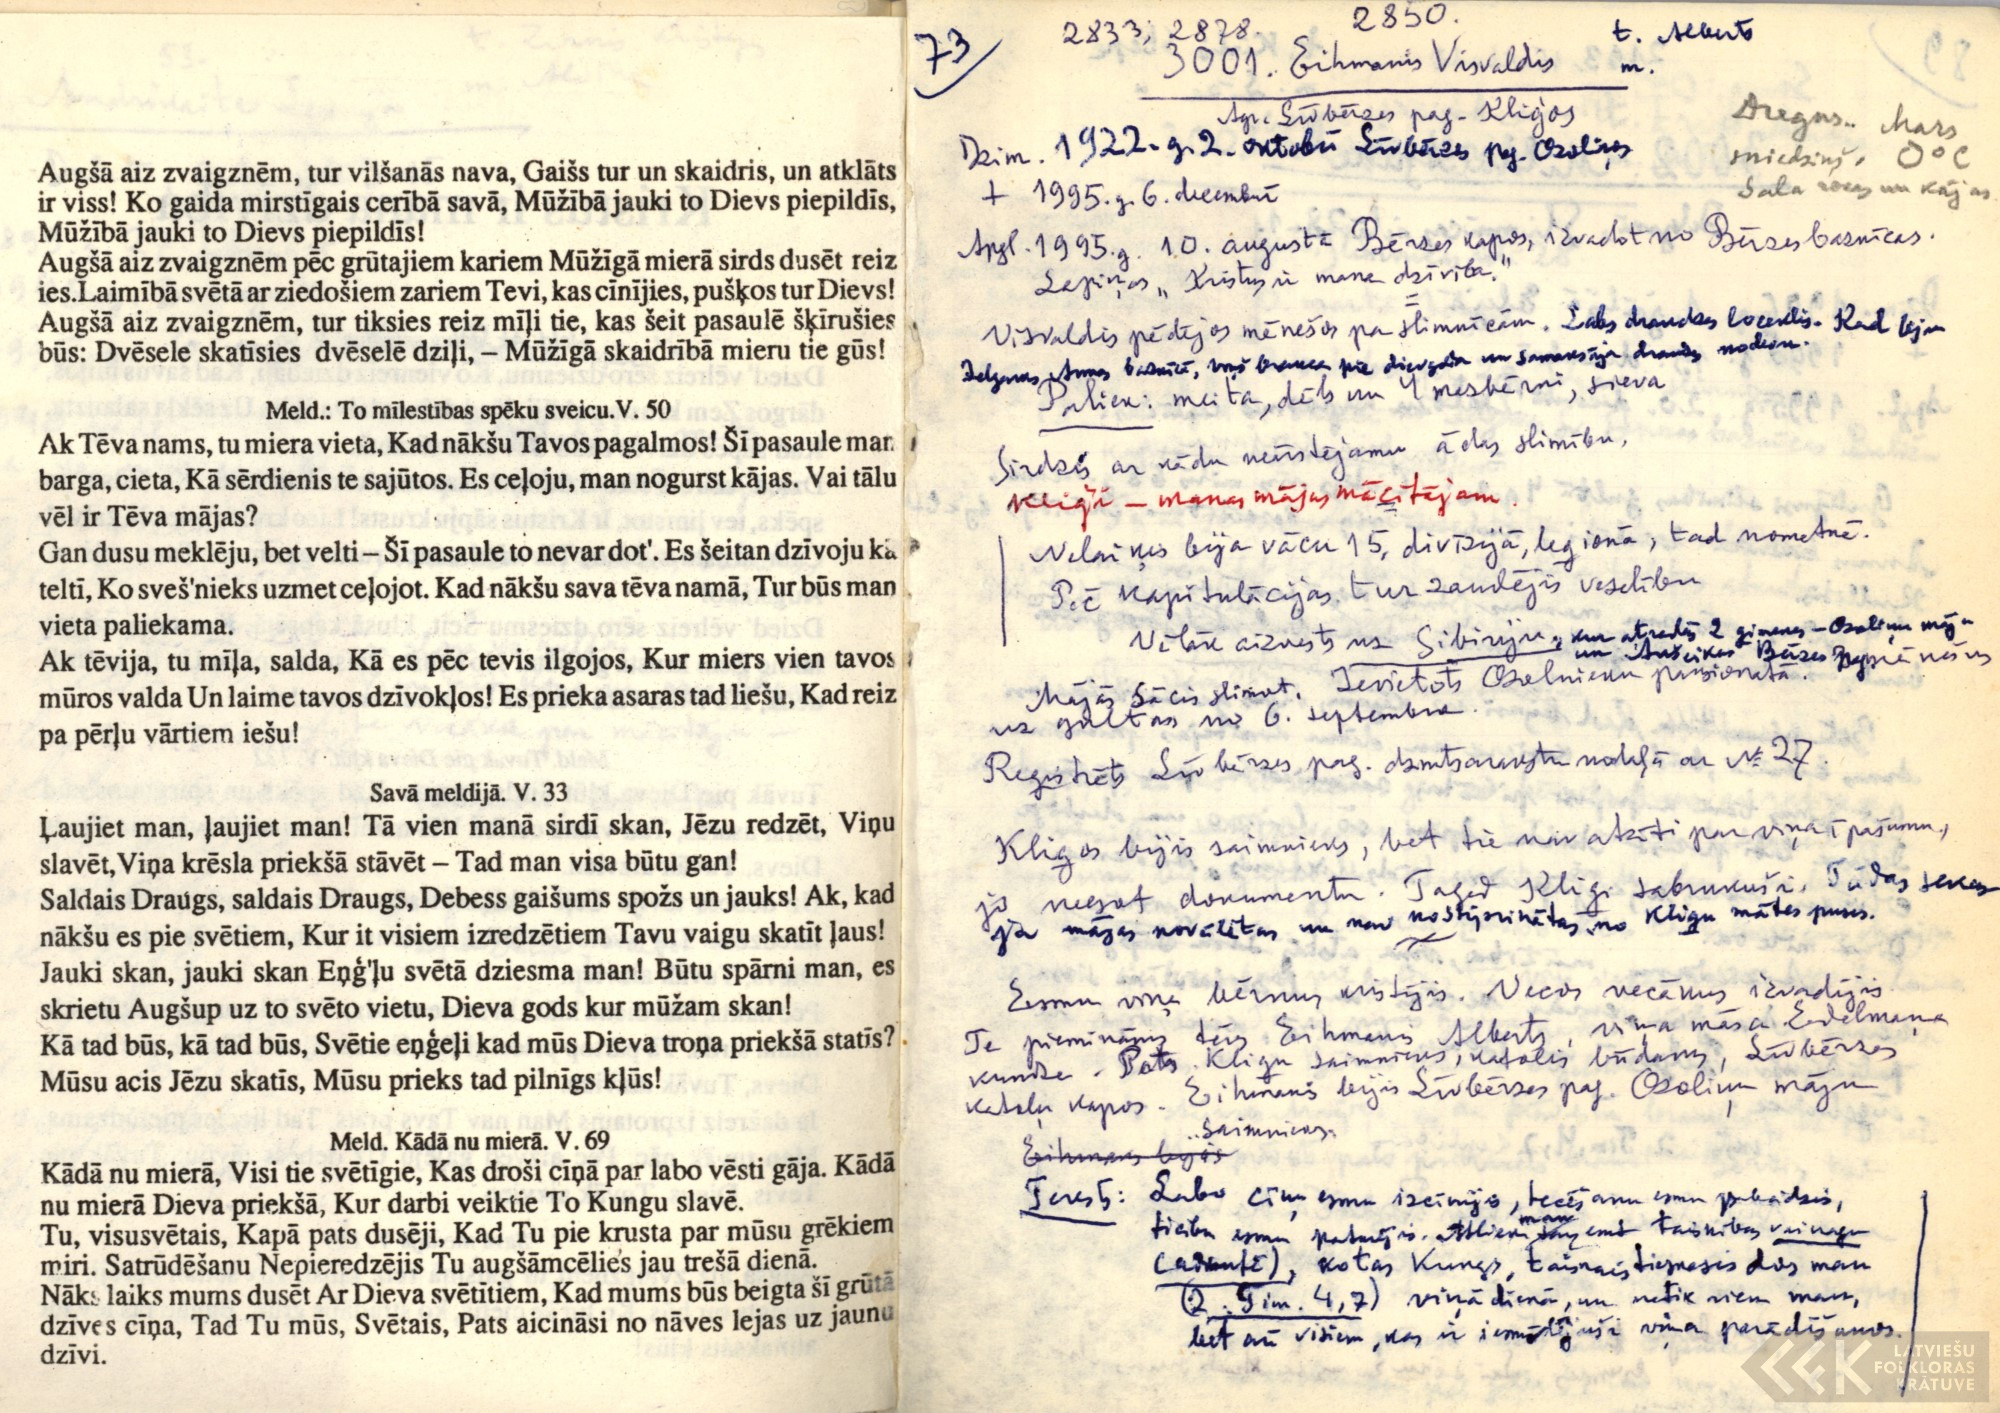 Augšā aiz zvaigznēm, tur vilšanās nava, Gaišs tur un skaidris, un atklāts
ir viss! Ko gaida mirstīgais cerībā savā, Mūžībā jauki to Dievs piepildīs,
Mūžībā jauki to Dievs piepildīs!
Augšā aiz zvaigznēm pēc grūtajiem kariem Mūžīgā mierā sirds dusēt reiz
ies.Laimībā svētā ar ziedošiem zariem Tevi, kas cīnījies, pušķos tur Dievs!
Augšā aiz zvaigznēm, tur tiksies reiz mīļi tie, kas šeit pasaulē šķīrušies
būs: Dvēsele skatīsies dvēselē dziļi, – Mūžīgā skaidrībā mieru tie gūs!
Meld.: To mīlestības spēku sveicu.V. 50
Ak Tēva nams, tu miera vieta, Kad nākšu Tavos pagalmos! Šī pasaule man
barga, cieta, Kā sērdienis te sajūtos. Es ceļoju, man nogurst kājas. Vai tālu
vēl ir Tēva mājas?
Gan dusu meklēju, bet velti – Šī pasaule to nevar dot'. Es šeitan dzīvoju kā
teltī, Ko sveš'nieks uzmet ceļojot. Kad nākšu sava tēva namā, Tur būs man
vieta paliekama.
Ak tēvija, tu mīļa, salda, Kā es pēc tevis ilgojos, Kur miers vien tavos
mūros valda Un laime tavos dzīvokļos! Es prieka asaras tad liešu, Kad reiz
pa pērļu vārtiem iešu!
Savā meldijā. V. 33
Ļaujiet man, ļaujiet man! Tā vien manā sirdī skan, Jēzu redzēt, Viņu
slavēt,Viņa krēsla priekšā stāvēt – Tad man visa būtu gan!
Saldais Draugs, saldais Draugs, Debess gaišums spožs un jauks! Ak, kad
nākšu es pie svētiem, Kur it visiem izredzētiem Tavu vaigu skatīt ļaus!
Jauki skan, jauki skan Eņģ'ļu svētā dziesma man! Būtu spārni man, es
skrietu Augšup uz to svēto vietu, Dieva gods kur mūžam skan!
Kā tad būs, kā tad būs, Svētie eņģeļi kad mūs Dieva troņa priekšā statīs?
Mūsu acis Jēzu skatīs, Mūsu prieks tad pilnīgs kļūs!
Meld. Kādā nu mierā. V. 69
Kādā nu mierā, Visi tie svētīgie, Kas droši cīņā par labo vēsti gāja. Kādā
nu mierā Dieva priekšā, Kur darbi veiktie To Kungu slavē.
Tu, visusvētais, Kapā pats dusēji, Kad Tu pie krusta par mūsu grēkiem
miri. Satrūdēšanu Nepieredzējis Tu augšāmcēlies jau trešā dienā.
Nāks laiks mums dusēt Ar Dieva svētītiem, Kad mums būs beigta šī grūtā
dzīves cīņa, Tad Tu mūs, Svētais, Pats aicināsi no nāves lejas uz jaunu
dzīvi.
73
2833, 2878. 2850.
3001. Eihmanis Visvaldis
t. Alberts
m.
Agr. Līvbērzes pag. Kligos
Dzim. 1922. g. 2. oktobrī Līvbērzes pag. Ozoliņos
+ 1995. g. 6. decembrī
Dregns. Mars
sniedziņš, 0°C
Sala rokas un kājas.
Apgl. 1995. g. 10. augustā Bērzes kapos, izvadot no Bērzes baznīcas.
Lapiņas „Kristus ir mana dzīvība."
Visvaldis pēdējos mēnešos pa slimnīcām. Labs draudzes loceklis. Kad bijm
Jelgavas Annas baznīcā, viņš brauca pie dievgalda un samaksāja draudz. nodevu.
Paliek: meita, dēls un 4 mazbērni, sieva
Sirdzis ar kādu neārstējamu ādas slimību.
Kligi – manas mājas mācītājam.
Nelaiķis bija vācu 15. divīzijā, leģionā, tad nometnē.
Pēc kapitulācijas. tur zaudējis veselību
Vēlāk aizvests uz Sibiriju, kur atradās 2 ģimenes – Ozoliņu māja
un Bērzes
Mājās sācis slimot. Ievietots Ozolnieku pansionātā.
uz gultas no 6. septembra.
Reģistrēts Līvbērzes pag. dzimtsarakstu nodaļā ar № 27.
Kligos bijis saimnieks, bet tie nav atzīti par viņa īpašumu,
jo neesot dokumentu. Tagad Kligi sabrukuši. Tūdas sekas
ja mājas novālītas un nav nostiprinātas no Kligu mātes puses.
Esmu viņa bērnus kristījis. Vecos vecākus izvadījis.
Te pieminams tēvs Eihmanis Alberts, viņa māsa Edelmaņa
kundze. Pats Kligu saimnieks, katolis būdams, Līvbērzes
katoļu kapos. Eihmanis bijis Līvbērzes pag. Ozoliņu māju
saimnieks.
Eihmanis bijis
Teksts: Labo cīņu esmu izcīnījis, tecēšanu esmu pabeidzis,
ticību esmu paturējis. Atliek man saņemt taisnības vainagu
, kotas Kungs, taisnais tiesnesis dos man
(2. Tim. 4,7) viņā dienā, un netik vien man,
bet arī visiem, kas ir iemīlējuši viņa parādīšanos.
LATVIEŠU
FOLKLORAS
KRĀTUVE